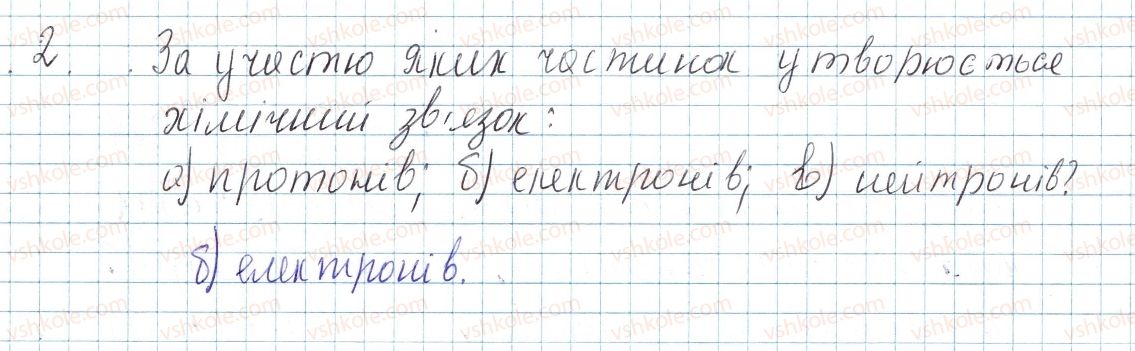 2. За участю яких частинок утворюється
хімічний зв'язок:
а) протонів; б) електронів; в) нейтронів?
б) електронів.